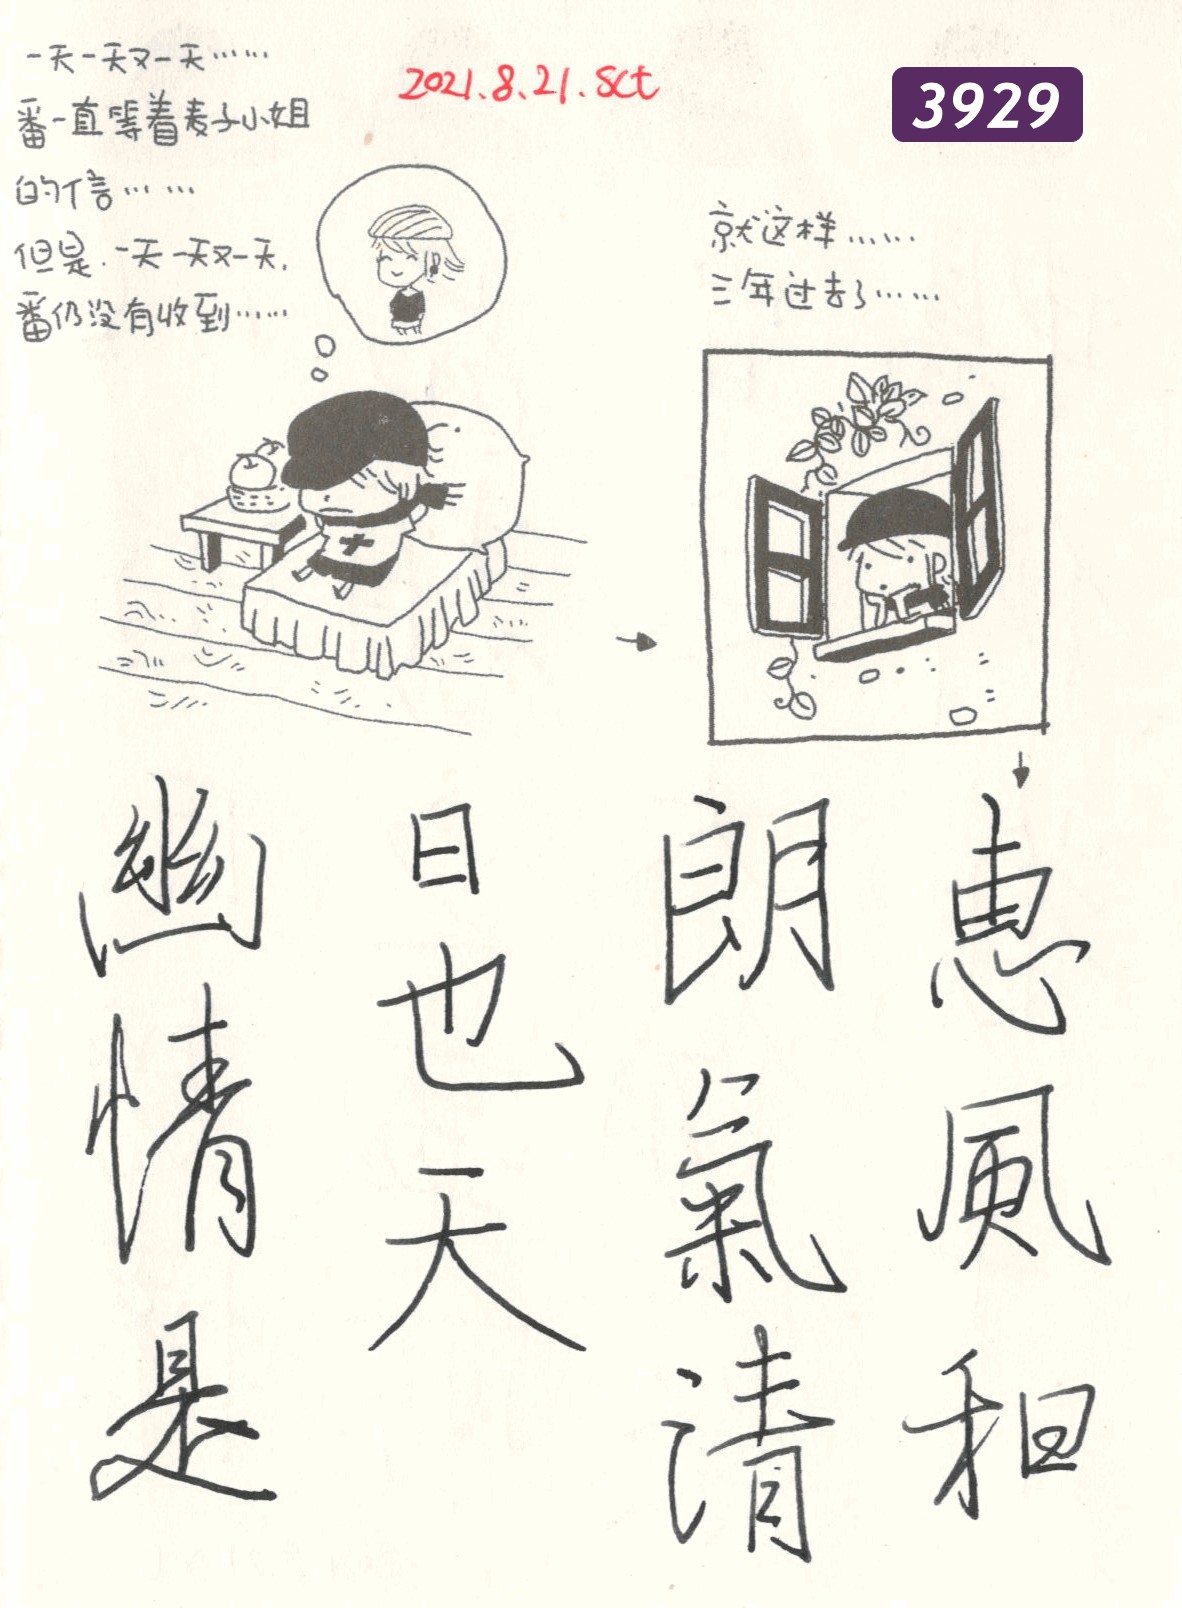 一天一天又一天……
番一直等着麦子小姐
的信……
但是.一天一天又一天.
番仍没有收到……
2021.8.21.Sct
3929
就这样……
三年过去了……
惠風和
朗氣清
日也天
幽情是